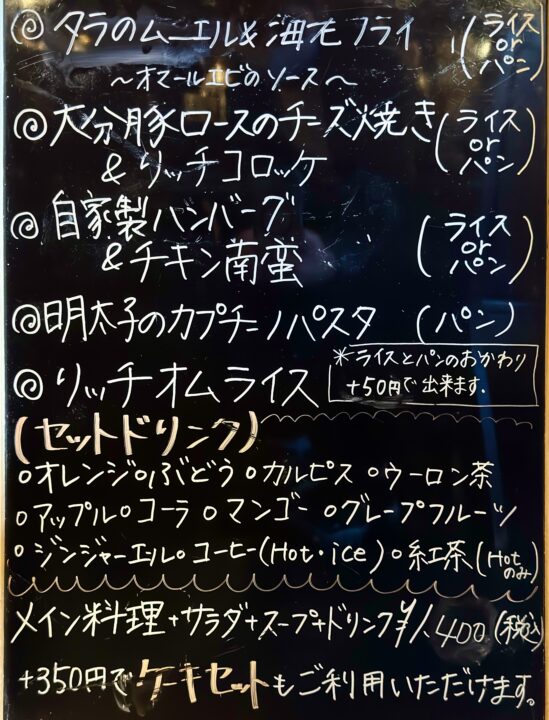 ◎ タラのムニエル&海老フライ (ライス or パン)
～オマールエビのソース～
◎大分豚ロースのチーズ焼き (ライス or パン)
&リッチコロッケ
◎自家製ハンバーグ (ライス or パン)
&チキン南蛮
◎明太子のカプチーノパスタ (パン)
◎リッチオムライス
※ライスとパンのおかわり
+50円で出来ます.
(セットドリンク)
○オレンジ○ぶどう ○カルピス ○ウーロン茶
○アップル○コーラ ○マンゴー ○グレープフルーツ
○ジンジャーエール○コーヒー(Hot・ice) ○紅茶(Hotのみ)
メイン料理+サラダ+スープ+ドリンク¥1,400(税込)
+350円でケーキセットもご利用いただけます。